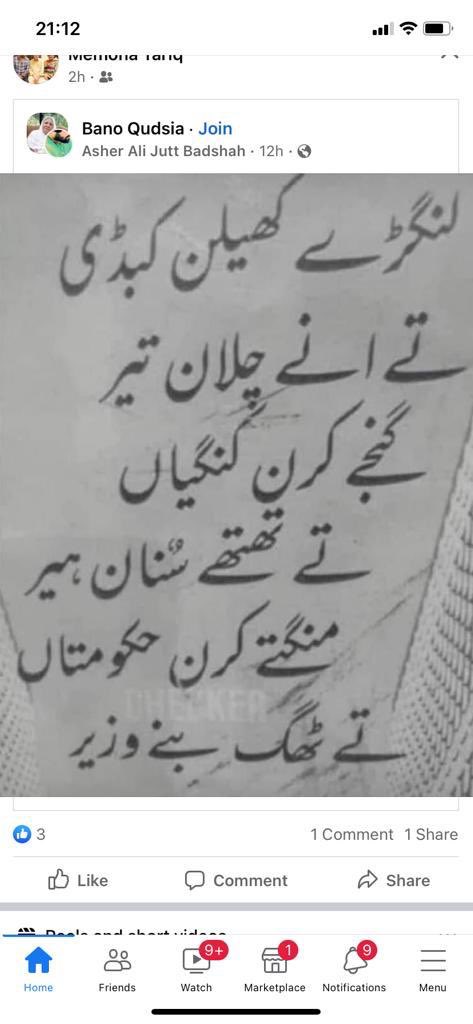 21:12
Memona Tariq
2h ·
Bano Qudsia · Join
Asher Ali Jutt Badshah · 12h ·
لنگڑے کھیلن کبڈی
تے انے چلان تیر
گنجے کرن کنگیاں
تے تھتھے سُنان ہیر
منگتے کرن حکومتاں
CHECKER
تے ٹھگ بنے وزیر
3
1 Comment 1 Share
Like Comment Share
Reels and short videos
9+ 1 9
Home Friends Watch Marketplace Notifications Menu